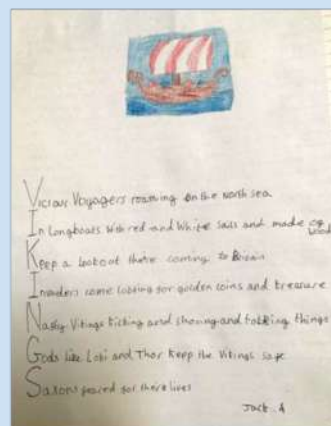 Vicious Voyagers roaming on the North sea
In Longboats with red and White sails and made of wood
Keep a lookout there coming to Britain
Invaders come looking for golden coins and treasure
Nasty Vikings kicking and shoving and taking things
Gods like Loki and Thor keep the Vikings safe
Saxons feared for there lives
Jack. A